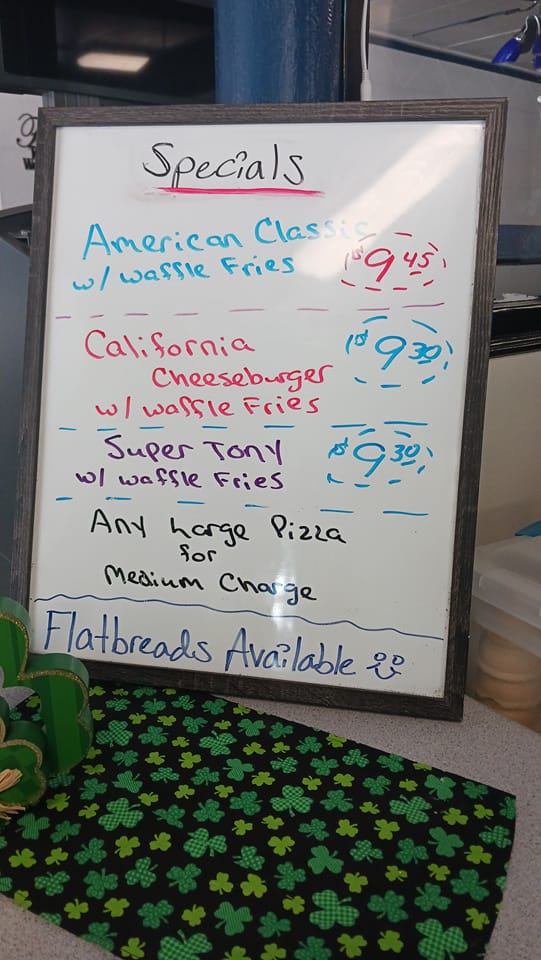 Specials
American Classic
w/ waffle Fries
$9.45
California
Cheeseburger
w/ waffle Fries
$9.30
Super Tony
w/ waffle Fries
$9.30
Any Large Pizza
for
Medium Charge
Flatbreads Available